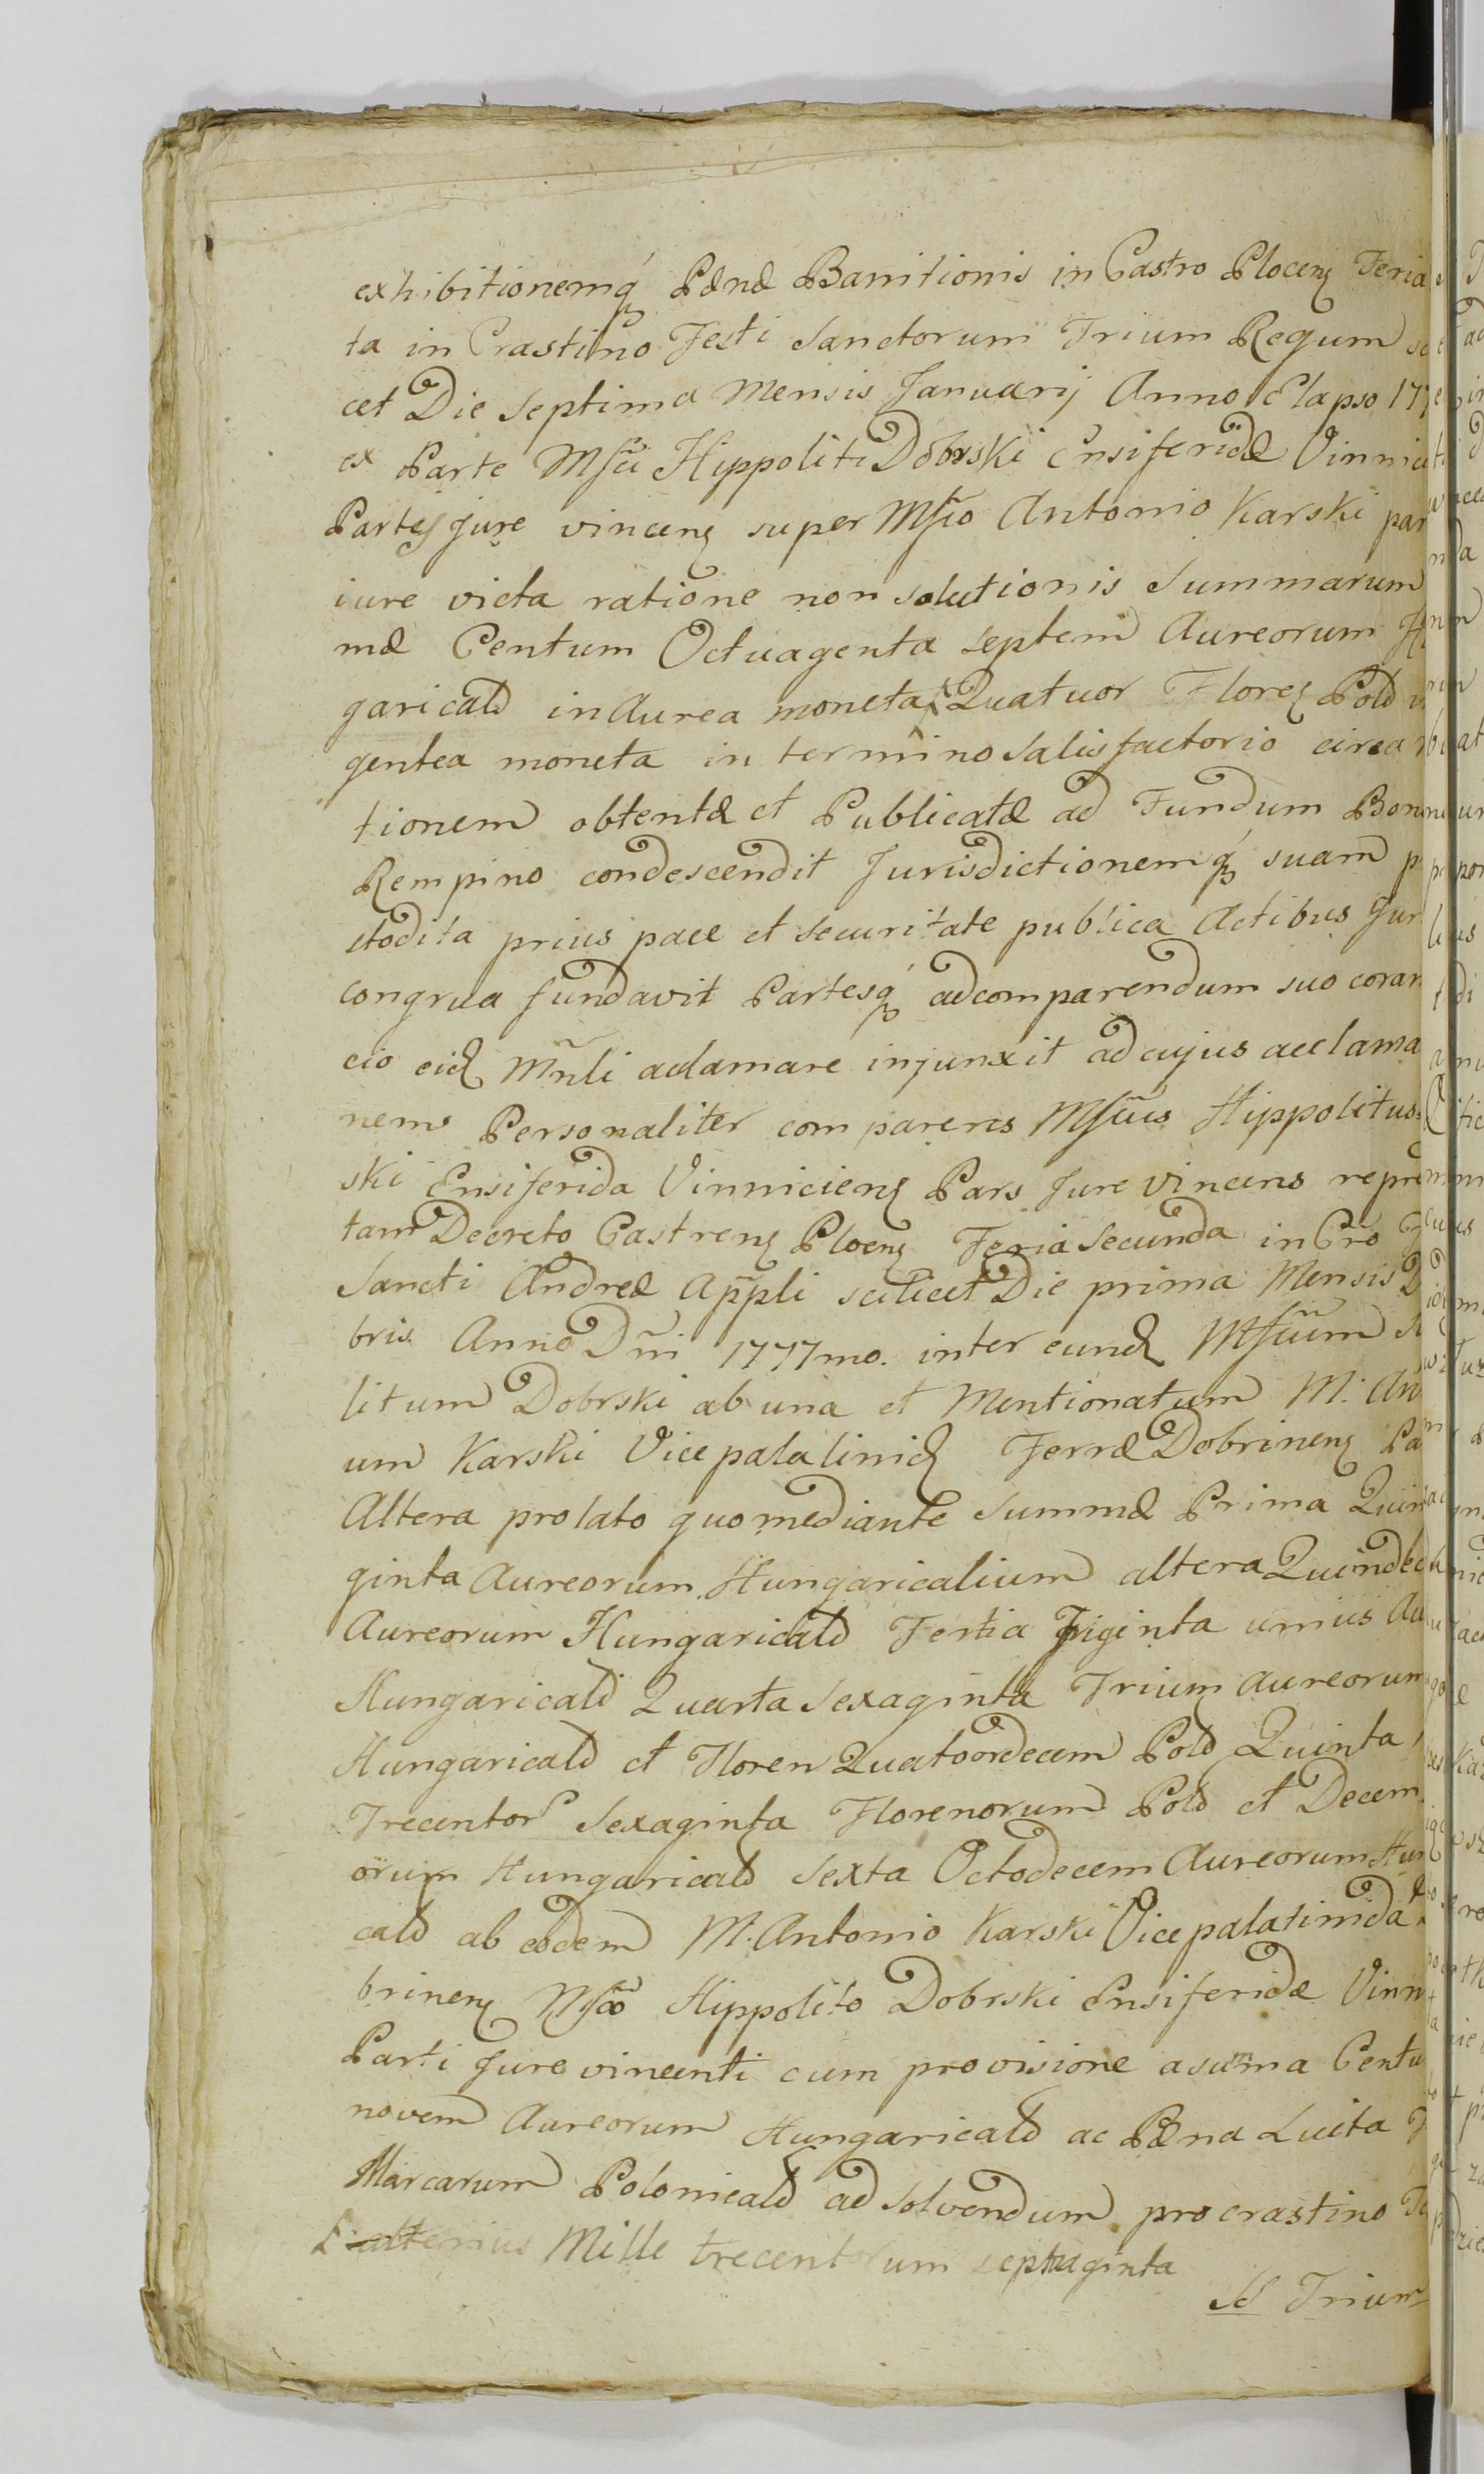 exhibitionemq́ Pænæ Bannitionis in Castro Plocens Feria
ta in Crastino Festi Sanctorum Trium Regum
cet Die Septima Mensis Januarij Anno Elapso 177
ex Parte Msci Hippoliti Dobrski Ensiferidæ Vinnic
Partes Jure vincens super Msco Antonio Karski par
iure victa ratione non solutionis Summarum
mæ Centum Octuagenta septem Aureorum
garicald in Aurea moneta Quatuor Flores Pold
gentea moneta in termino Salisfactorio circa
tionem obtentæ et Publicatæ ad Fundum Bon
Rempino condescendit Jurisdictionemq́ suam
stodita prius pace et securitate publica Actibus Jur
congrua fundavit Partesq́ ad comparendum suo coram
cio eid Mnli aclamare injunxit ad cujus acclama
nem Personaliter comparens Mscus Hippolitus
ski Ensiferida Vinniciens Pars Jure vincens
tam Decreto Castrens Plocens Feria Secunda in Cro
Sancti Andreæ Appli scilicet Die prima Mensis D
bris Anno Dni 1777mo. inter eund Mscum
litum Dobrski ab una et Mentionatum M. An
um Karski Vicepalatinid Terræ Dobrinens Pa
Altera prolato quo mediante Summæ Prima Quin
ginta Aureorum Hungaricalium altera Quindec
Aureorum Hungaricald Tertia Triginta unius Au
Hungaricald Quarta Sexaginta Trium Aureorum
Hungaricald et Floren Quatoordecem Pold Quinta
Trecentor Sexaginta Florenorum Pold et Decem
orum Hungaricald Sexta Octodecem Aureorum Hun
cald ab eodem M. Antonio Karski Vicepalatinida
brinens Msco Hippolito Dobrski Ensiferidæ Vinn
Parti Jure vincenti cum provisione a summa Centu
novem Aureorum Hungaricald ac Pæna Luita
Marcarum Polonicald ad solvendum pro crastino
alterius Mille trecentorum septuaginta
Trium